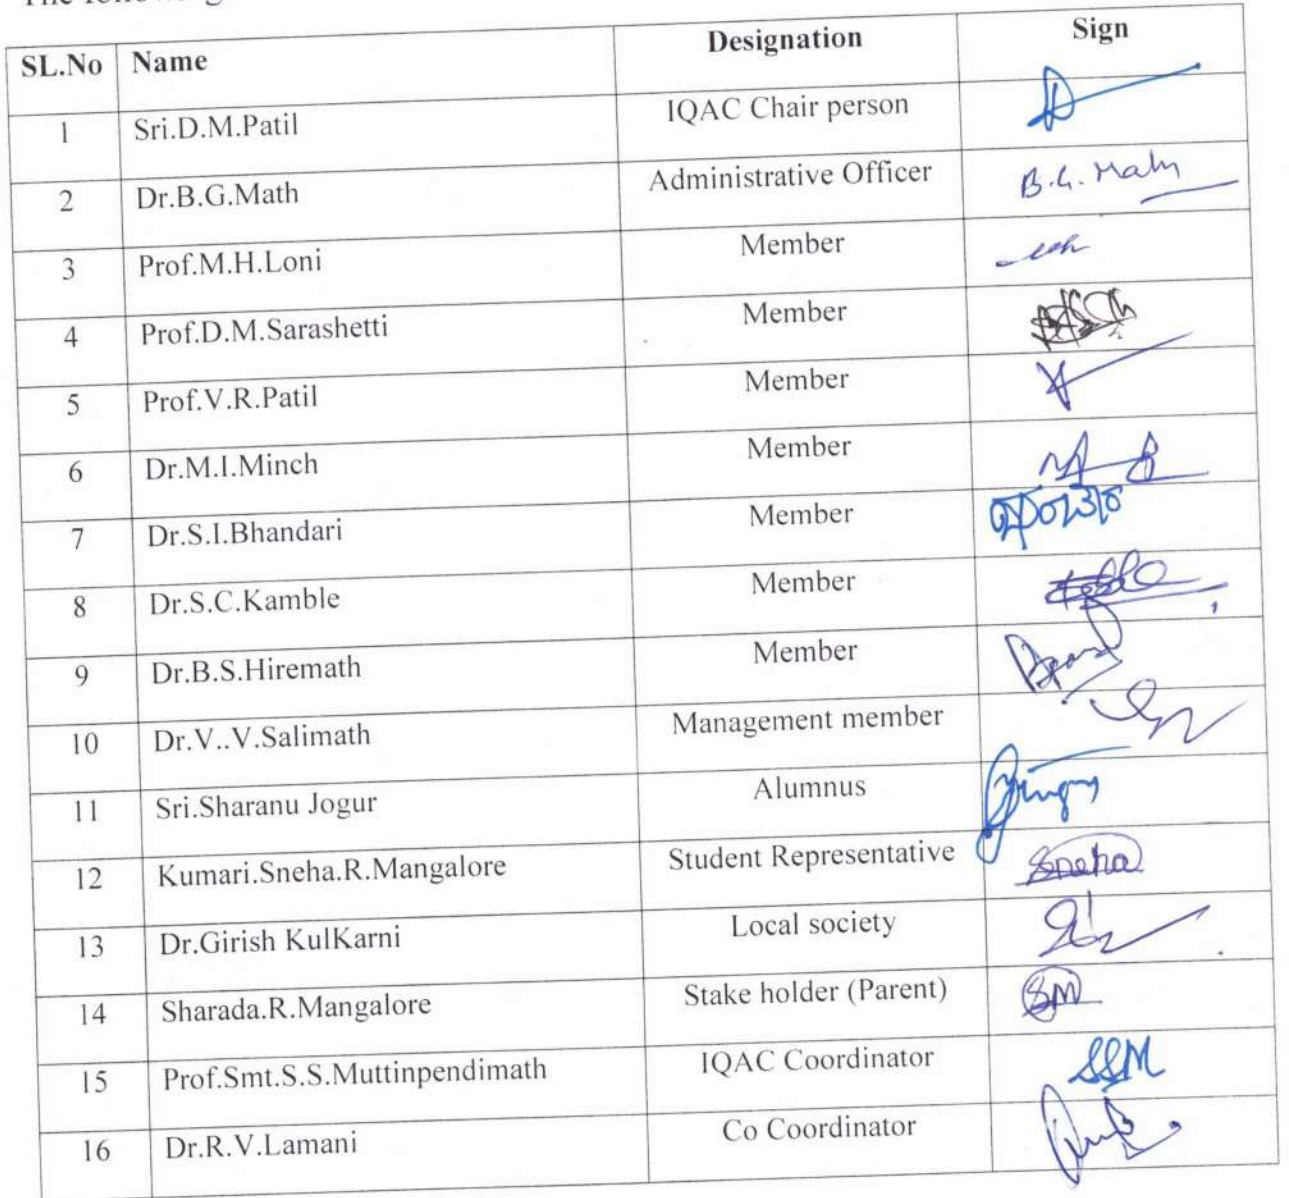 SL.No Name Designation Sign
1 Sri.D.M.Patil IQAC Chair person
2 Dr.B.G.Math Administrative Officer B.G. Math
3 Prof.M.H.Loni Member
4 Prof.D.M.Sarashetti Member
5 Prof.V.R.Patil Member
6 Dr.M.I.Minch Member
7 Dr.S.I.Bhandari Member
8 Dr.S.C.Kamble Member
9 Dr.B.S.Hiremath Member
10 Dr.V..V.Salimath Management member
11 Sri.Sharanu Jogur Alumnus
12 Kumari.Sneha.R.Mangalore Student Representative Sneha
13 Dr.Girish KulKarni Local society
14 Sharada.R.Mangalore Stake holder (Parent) SM
15 Prof.Smt.S.S.Muttinpendimath IQAC Coordinator SSM
16 Dr.R.V.Lamani Co Coordinator